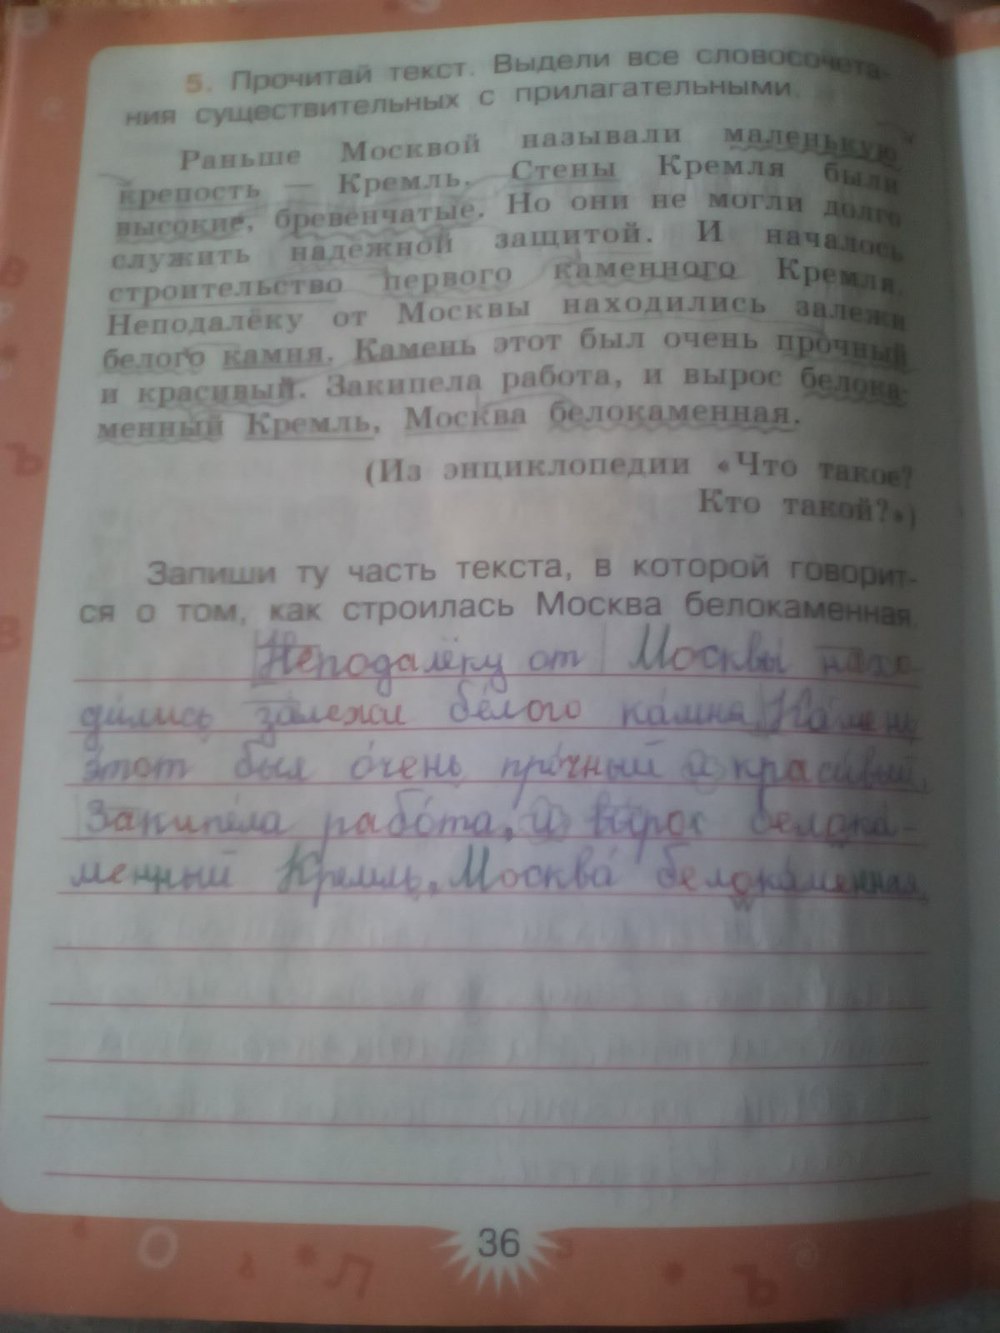 5. Прочитай текст. Выдели все словосочета-
ния существительных с прилагательными.
Раньше Москвой называли маленькую
крепость — Кремль. Стены Кремля были
высокие, бревенчатые. Но они не могли долго
служить надежной защитой. И началось
строительство первого каменного Кремля.
Неподалёку от Москвы находились залежи
белого камня. Камень этот был очень прочный
и красивый. Закипела работа, и вырос белока-
менный Кремль, Москва белокаменная.
(Из энциклопедии «Что такое?
Кто такой?»)
Запиши ту часть текста, в которой говорит-
ся о том, как строилась Москва белокаменная.
Неподалёку от Москвы нахо-
ди́лись за́лежи бе́лого ка́мня. Ка́мень
э́тот был о́чень про́чный и краси́вый.
Закипе́ла рабо́та, и вы́рос белока́-
менный Кремль, Москва́ белока́менная.
36